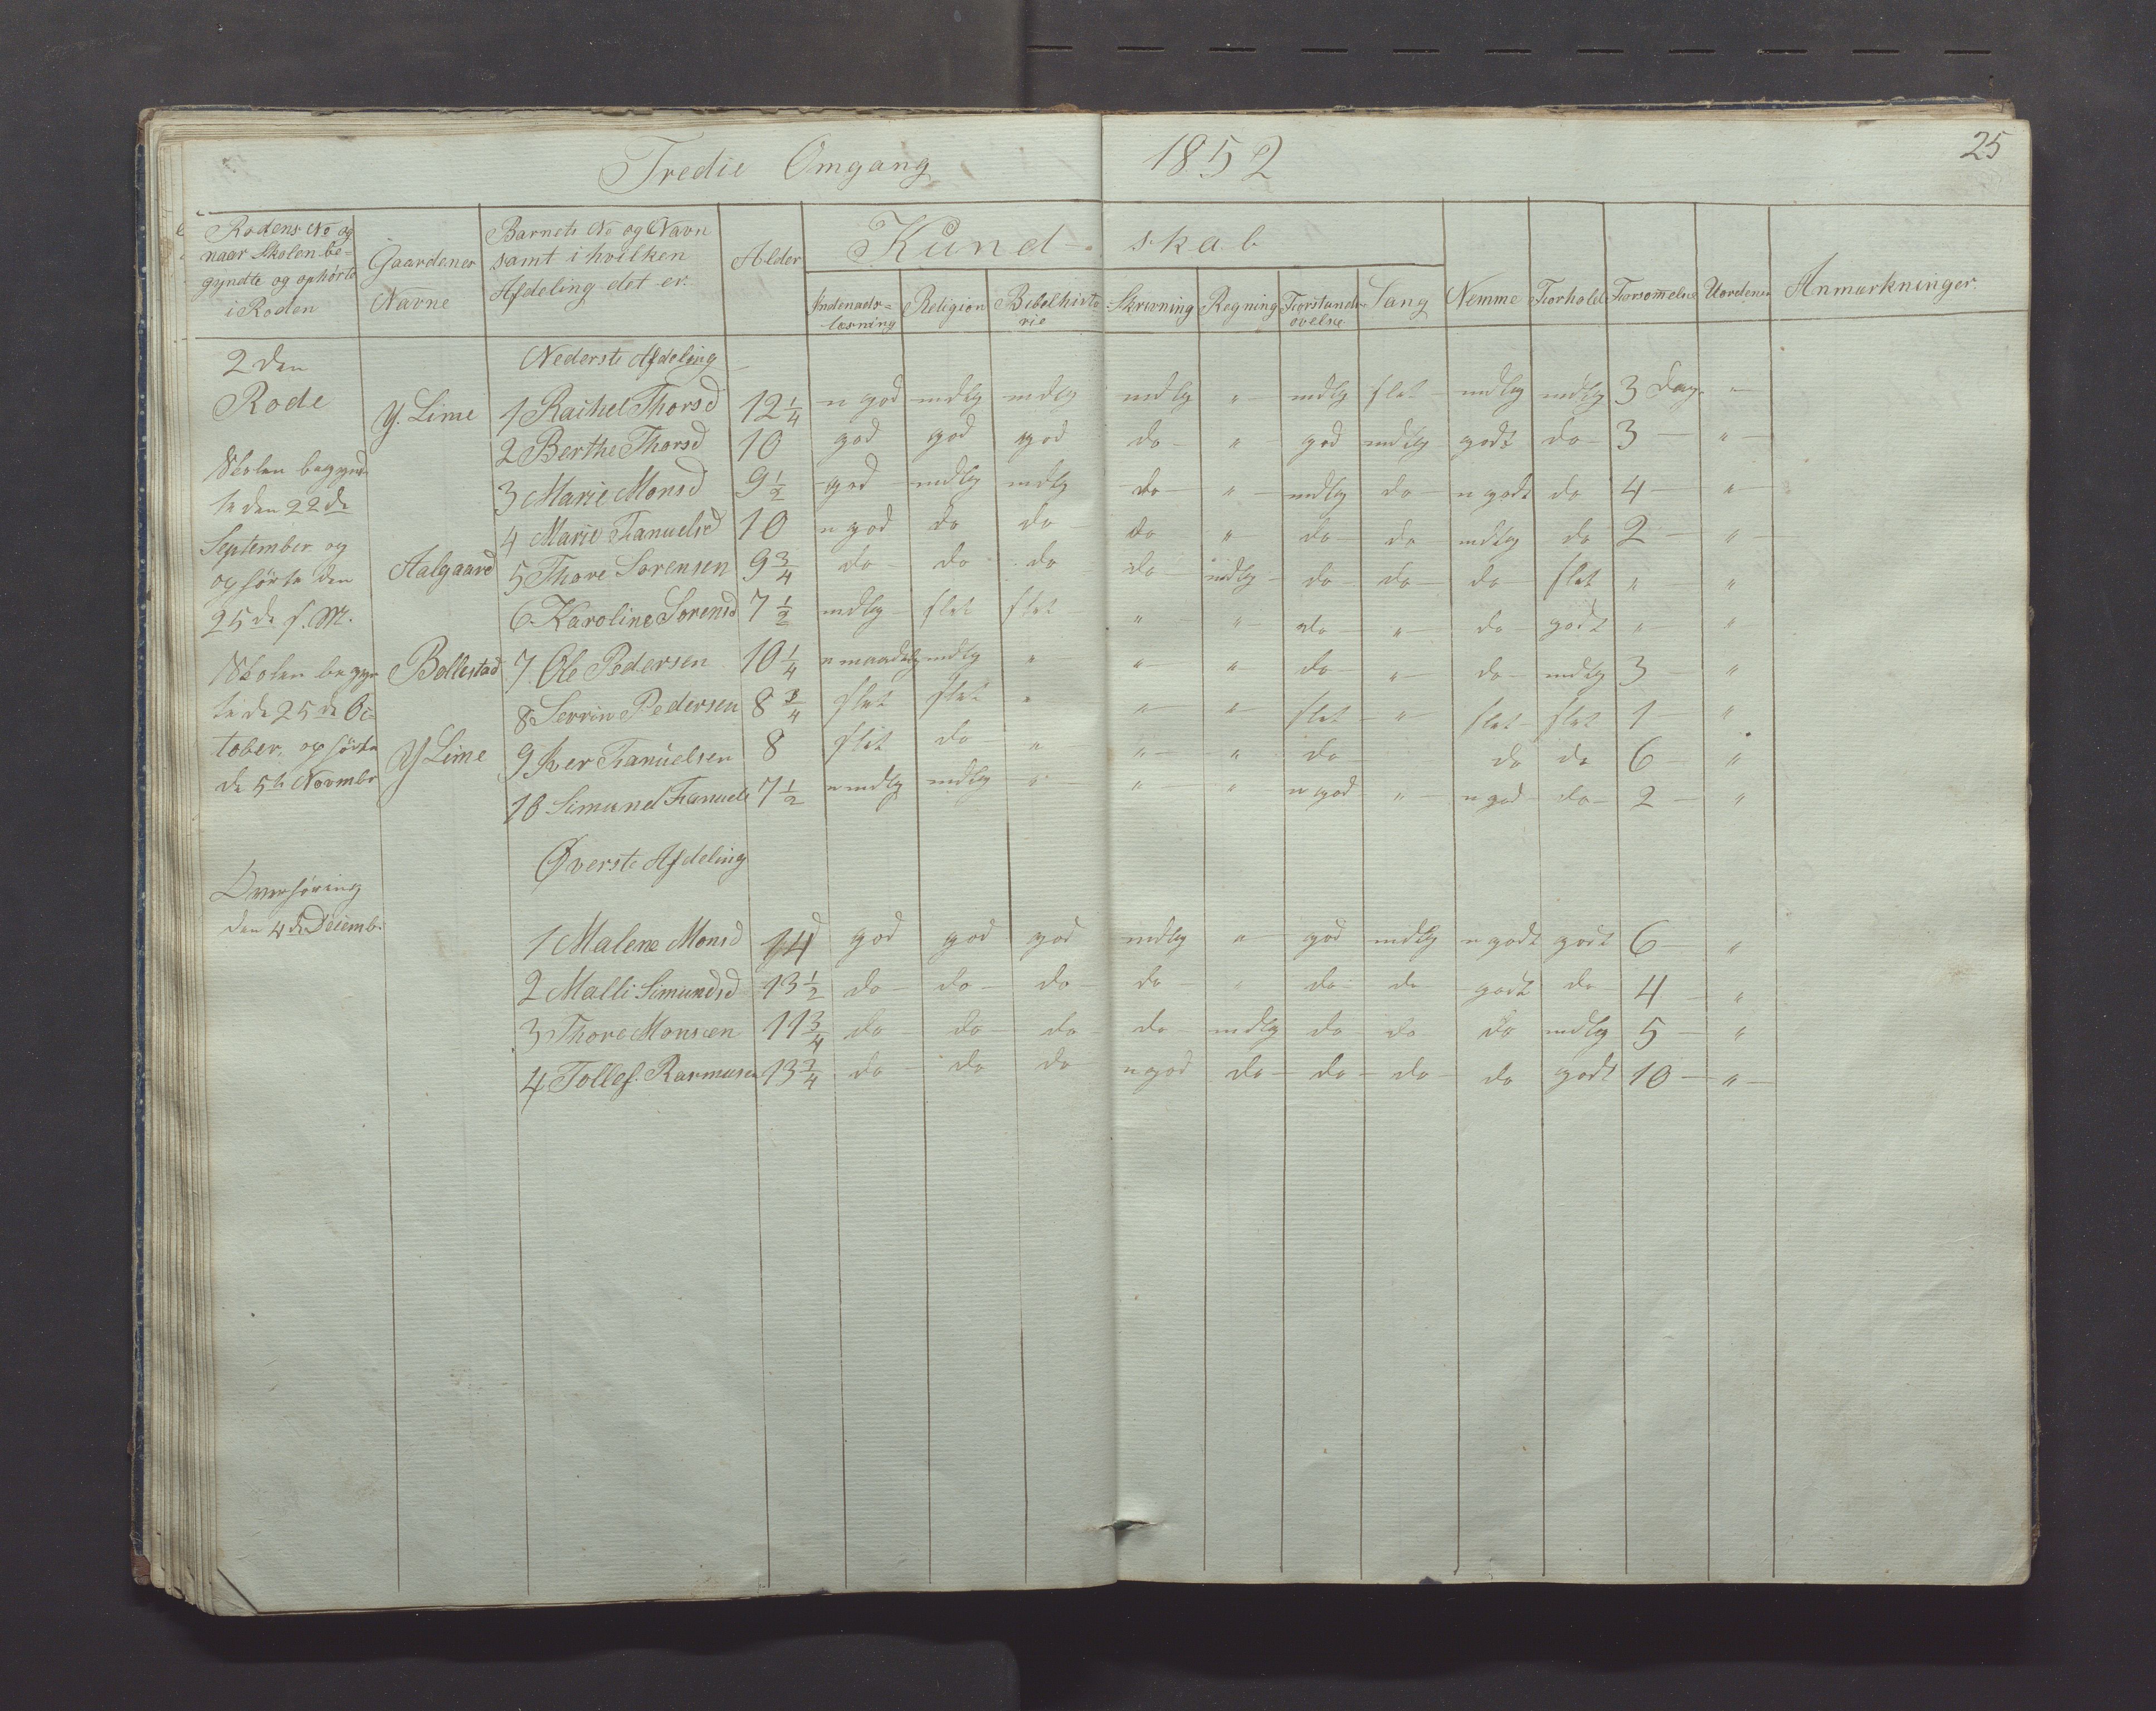 Tredie Omgang 1852 25
Rodens No og
naar Skolen be-
gyndte og ophørte
i Roden
Gaardenes
Navne
Barnets No og Navn
samt i hvilken
Afdeling det er.
Alder
Kund- skab
Indenads-
læsning
Religion
Bibelhisto
rie
Skrivning
Regning
Forstands-
øvelse
Sang
Nemme
Forhold
Forsømelse
Uordener
Anmærkninger.
2den
Rode
Skolen begynd
te den 22de
September og
ophørte den
25de s. M.
Skolen begyn
te de 25de Oc
tober, ophørte
de 5te Novmbr
Overhøring
den 4de Decemb.
Nederste Afdeling
Y. Lime 1 Rachel Thorsd 12 1/4 n god mdlg mdlg mdlg " mdlg slet mdlg mdlg 3 Dag. "
2 Berthe Thorsd 10 god god god do " god mdlg godt do 3 "
3 Marie Monsd 9 1/2 god mdlg mdlg do " mdlg do n godt do 4 "
4 Marie Fanuelsd 10 n god do do do " do do mdlg do 2 "
Aalgaard 5 Thore Sørensen 9 3/4 do do do do mdlg do do do slet " "
6 Karoline Sørensd 7 1/2 mdlg slet slet " " do " do godt " "
Bollestad 7 Ole Pedersen 10 1/4 n maadelg mdlg " " " do " do mdlg 3 "
8 Serrine Pedersen 8 3/4 slet slet " " " slet " slet slet 1 "
Y Lime 9 Iver Fanuelsen 8 slet do " " " do do do 6 "
10 Simund Fanuels 7 1/2 n mdlg mdlg " " " n god " n god do 2 "
Øverste Afdeling
1 Malene Monsd 14 god god god mdlg " god mdlg n godt godt 6 "
2 Malli Simundsd 13 1/2 do do do do " do do godt do 4 "
3 Thore Monsen 11 3/4 do do do do mdlg do do do mdlg 5 "
4 Tollef. Rasmusen 13 3/4 do do do n god do do do do godt 10 "